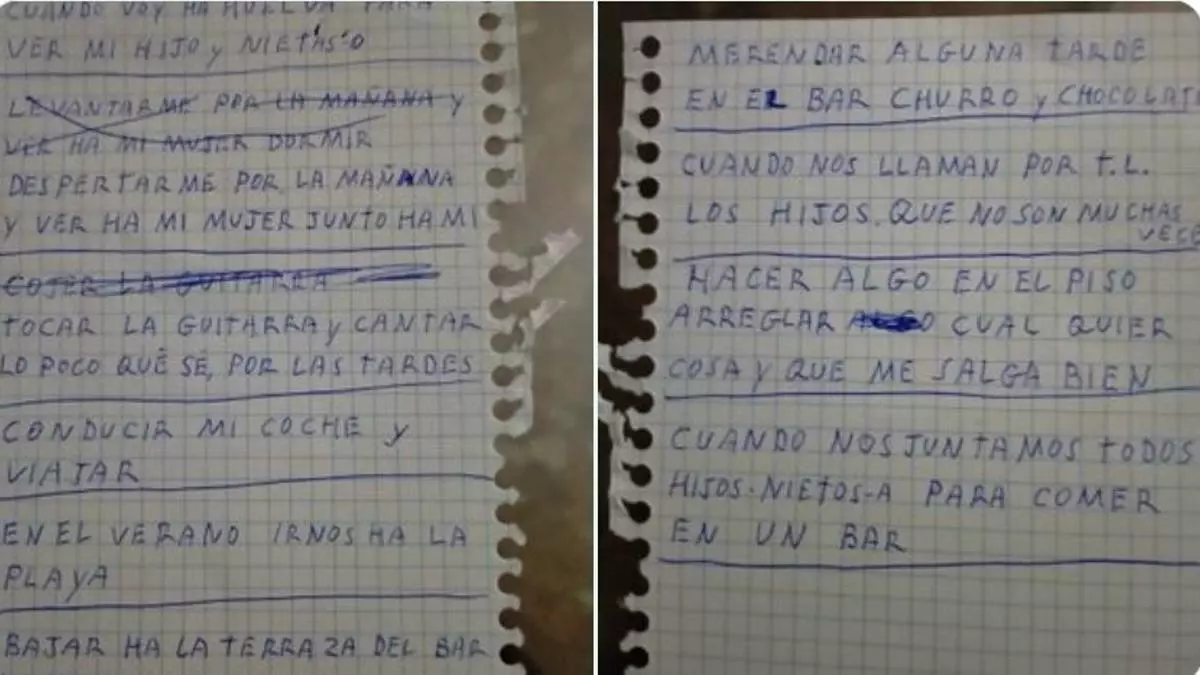 CUANDO VOY HA HUELVA PARA
VER MI HIJO y NIETAS-O
LEVANTARME POR LA MAÑANA y
VER HA MI MUJER DORMIR
DESPERTARME POR LA MAÑANA
y VER HA MI MUJER JUNTO HA MI
COJER LA GUITARRA
TOCAR LA GUITARRA y CANTAR
LO POCO QUÉ SÉ, POR LAS TARDES
CONDUCIR MI COCHE y
VIAJAR
EN EL VERANO IRNOS HA LA
PLAyA
BAJAR HA LA TERRAZA DEL BAR
MERENDAR ALGUNA TARDE
EN EL BAR CHURRO y CHOCOLAT
CUANDO NOS LLAMAN POR T.L.
LOS HIJOS. QUE NO SON MUCHAS
VECE
HACER ALGO EN EL PISO
ARREGLAR ALGO CUAL QUIER
COSA y QUE ME SALGA BIEN
CUANDO NOS JUNTAMOS TODOS
HIJOS-NIETOS-A PARA COMER
EN UN BAR